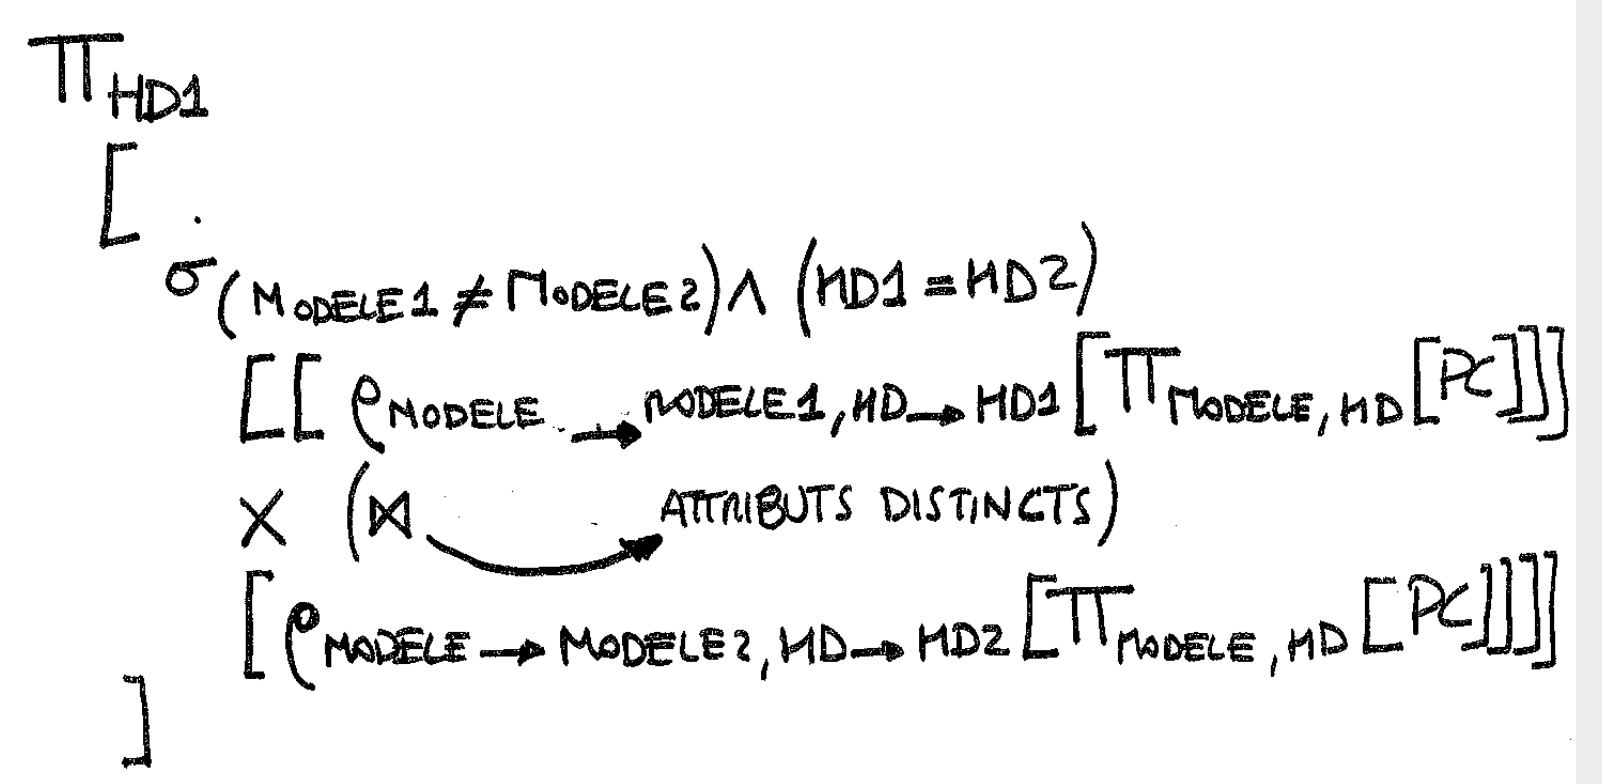 π HD1
[
σ (MODELE1 ≠ MODELE2) ∧ (HD1 = HD2)
[[ ρ MODELE → MODELE1, HD → HD1 [π MODELE, HD [PC]]]
× (⋈ → ATTRIBUTS DISTINCTS)
[ρ MODELE → MODELE2, HD → HD2 [π MODELE, HD [PC]]]]
]